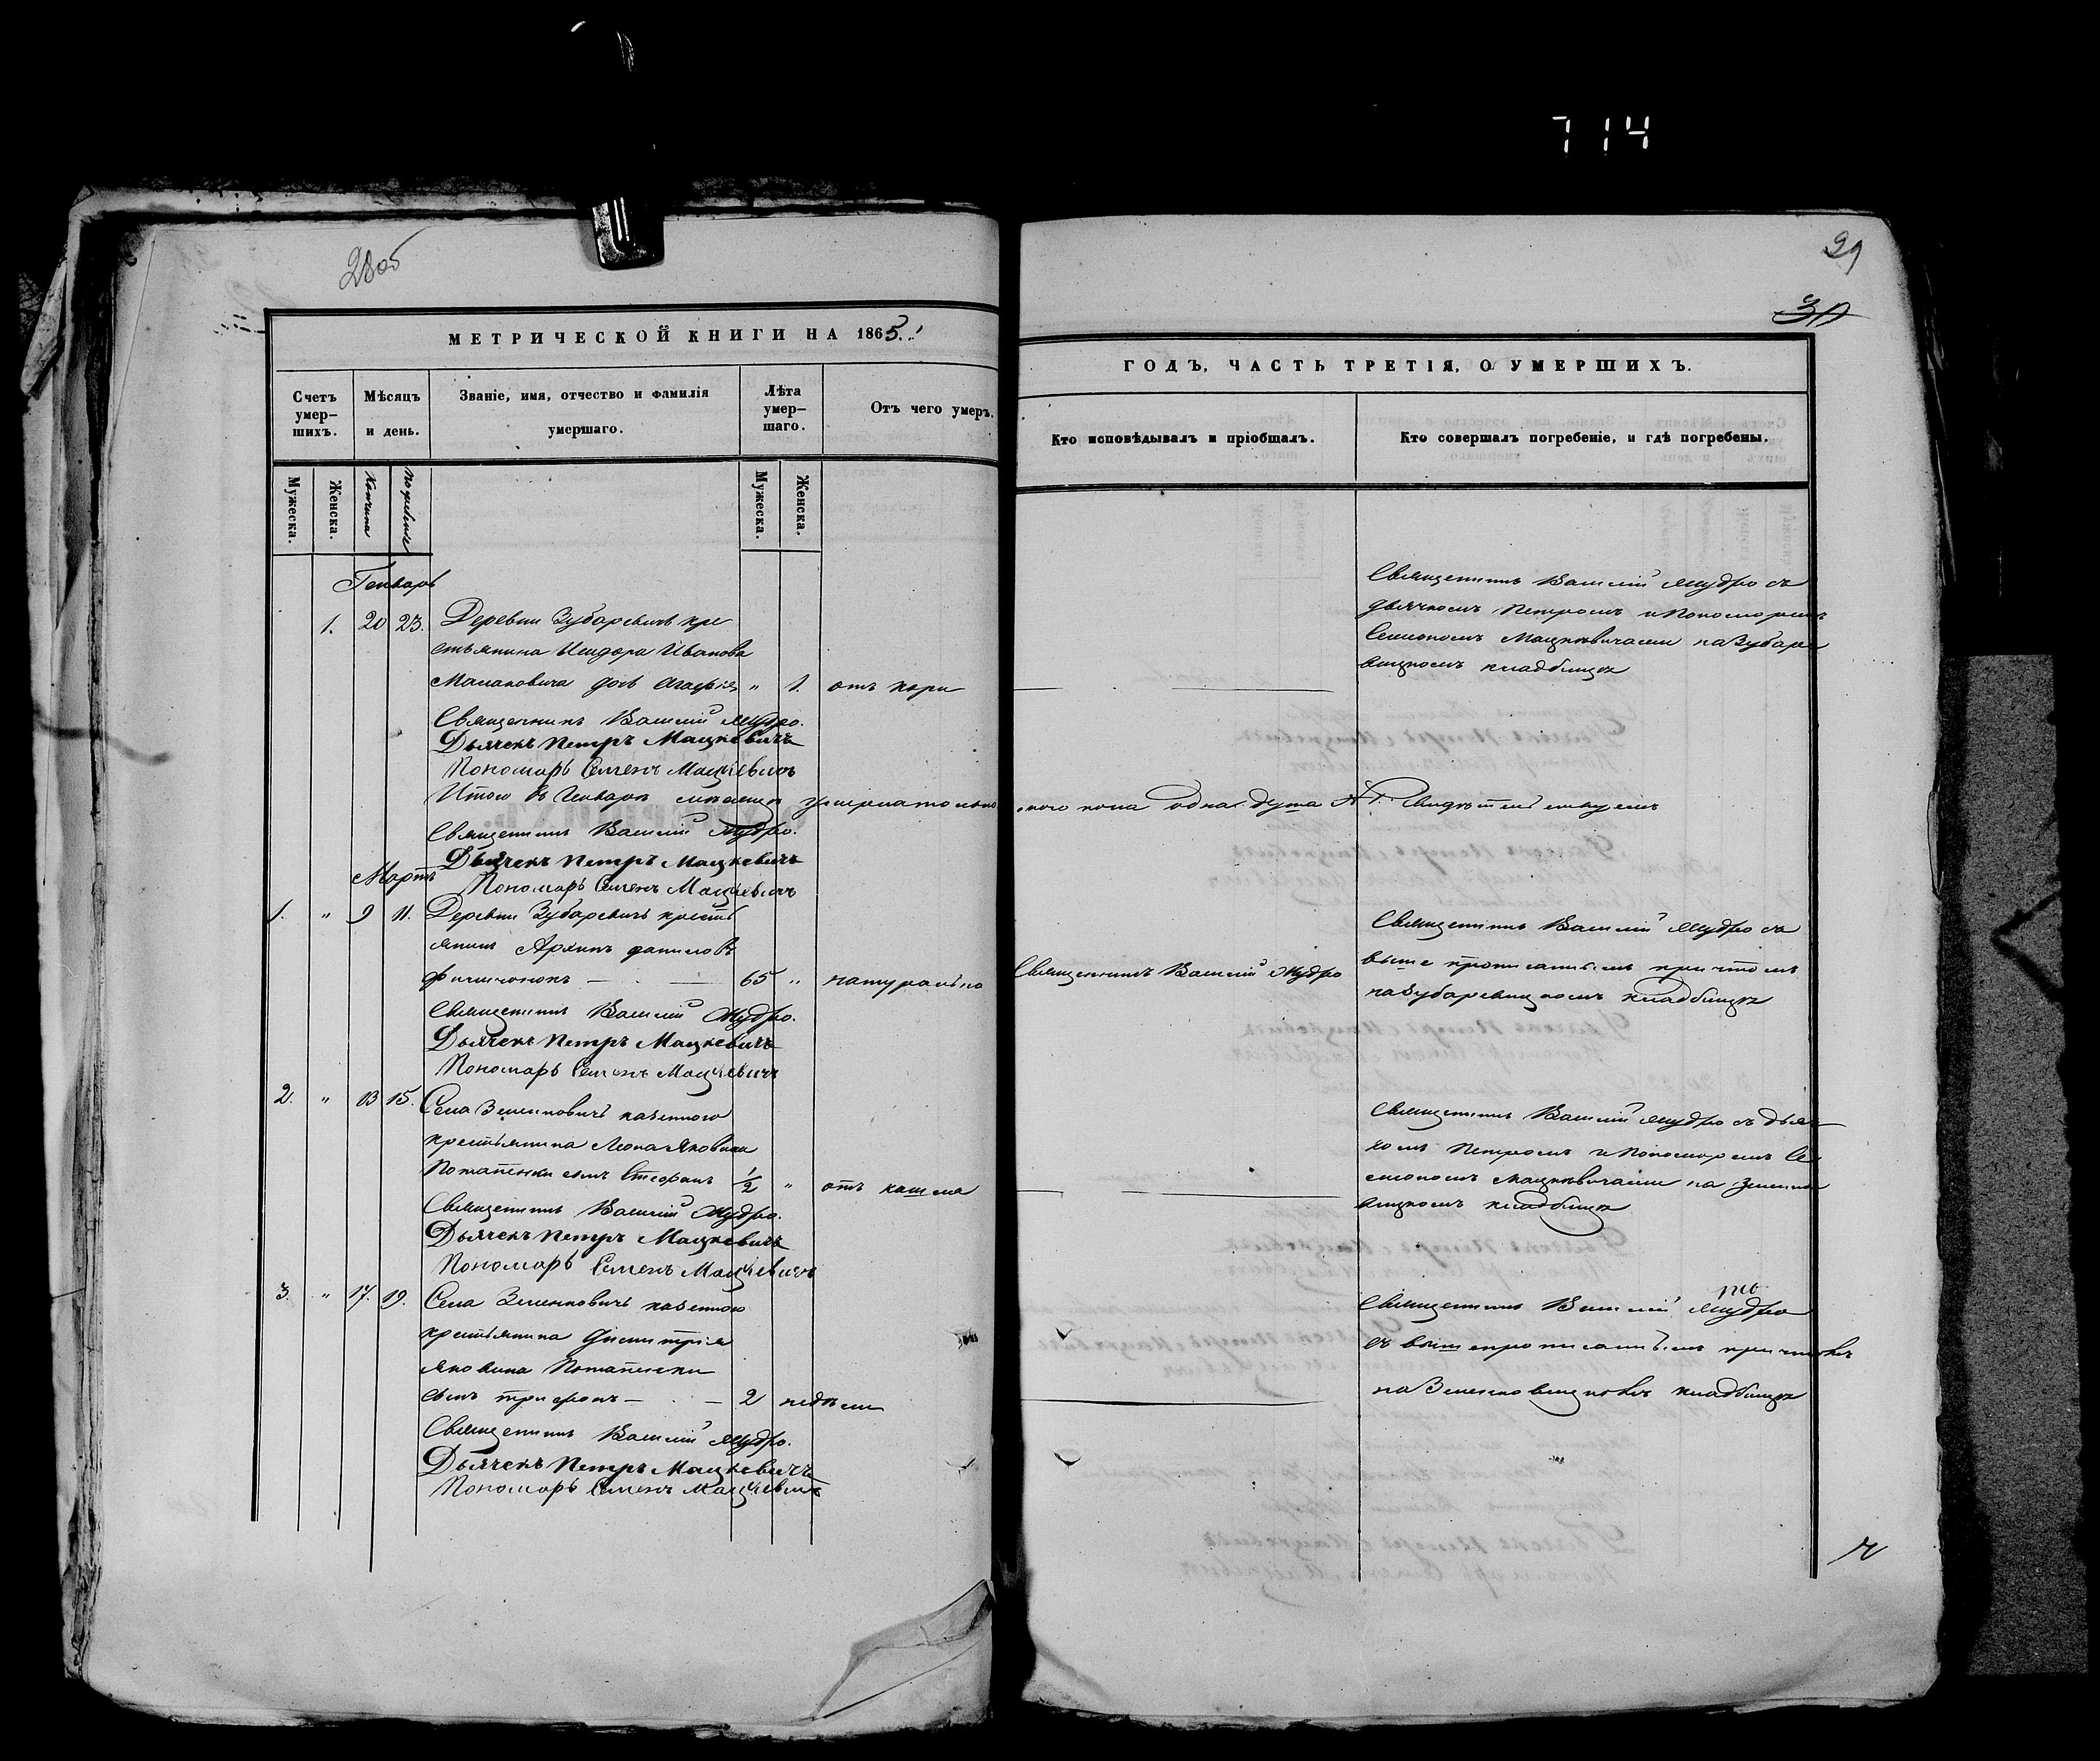 714
28об
29
30
МЕТРИЧЕСКОЙ КНИГИ НА 1865.
ГОДЪ, ЧАСТЬ ТРЕТІЯ, О УМЕРШИХЪ.
Счетъ умер–шихъ.
Мѣсяцъ и день.
Званіе, имя, отчество и фамилія умершаго.
Лѣта умер–шаго.
Отъ чего умеръ.
Кто исповѣдывалъ и пріобщалъ.
Кто совершалъ погребеніе, и гдѣ погребены.
Мужеска.
Женска.
Кончина
Погребенія
Мужеска.
Женска.
Генварь
1. 20 23. Деревни Зубаревичъ кре
стьянина Исидора Иванова
Малаковича дочь Агафія „ 1. отъ кори
Священникъ Василій Мудро.
Дьячекъ Петръ Мацкевичъ
Пономарь Семенъ Мацкевичъ
Священникъ Василій Мудро съ
дьячкомъ Петромъ и Пономаремъ
Семіономъ Мацкевичами на Зубаре
вицкомъ кладбищѣ
Итого въ Генварѣ мѣсяцѣ умерла
пола одна душа
Священникъ Василій Мудро.
Дьячекъ Петръ Мацкевичъ
Пономарь Семенъ Мацкевичъ
Мартъ
1. „ 9 11. Деревни Зубаревичъ кресть
янинъ Архипъ Даниловъ
65 „ натурально
Священникъ Василій Мудро.
Дьячекъ Петръ Мацкевичъ
Пономарь Семенъ Мацкевичъ
Священникъ Василій Мудро
Священникъ Василій Мудро съ
выше прописаннымъ причтомъ
на Зубаревицкомъ кладбищѣ
2. „ 13 15. Села Зеленковичъ казенного
крестьянина Леона Яковина
Потапенки сынъ Стефанъ 1/2 „ отъ кашля
Священникъ Василій Мудро.
Дьячекъ Петръ Мацкевичъ
Пономарь Семенъ Мацкевичъ
Священникъ Василій Мудро съ дьяч
комъ Петромъ и Пономаремъ Се
міономъ Мацкевичами на Зеленко
вицкомъ кладбищѣ
3. „ 17. 19. Села Зеленковичъ казенного
крестьянина Димитрія
Яковина Потапенки
сынъ Трифонъ — — 2 недѣли
Священникъ Василій Мудро.
Дьячекъ Петръ Мацкевичъ
Пономарь Семенъ Мацкевичъ
Священникъ Василій Мудро
съ вышепрописаннымъ причтомъ
на Зеленковицкомъ кладбищѣ